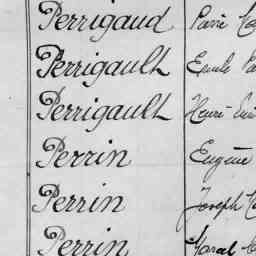 Perrigaud Pierre
Perrigault Emile
Perrigault Henri
Perrin Eugène
Perrin Joseph
Perrin Marcel